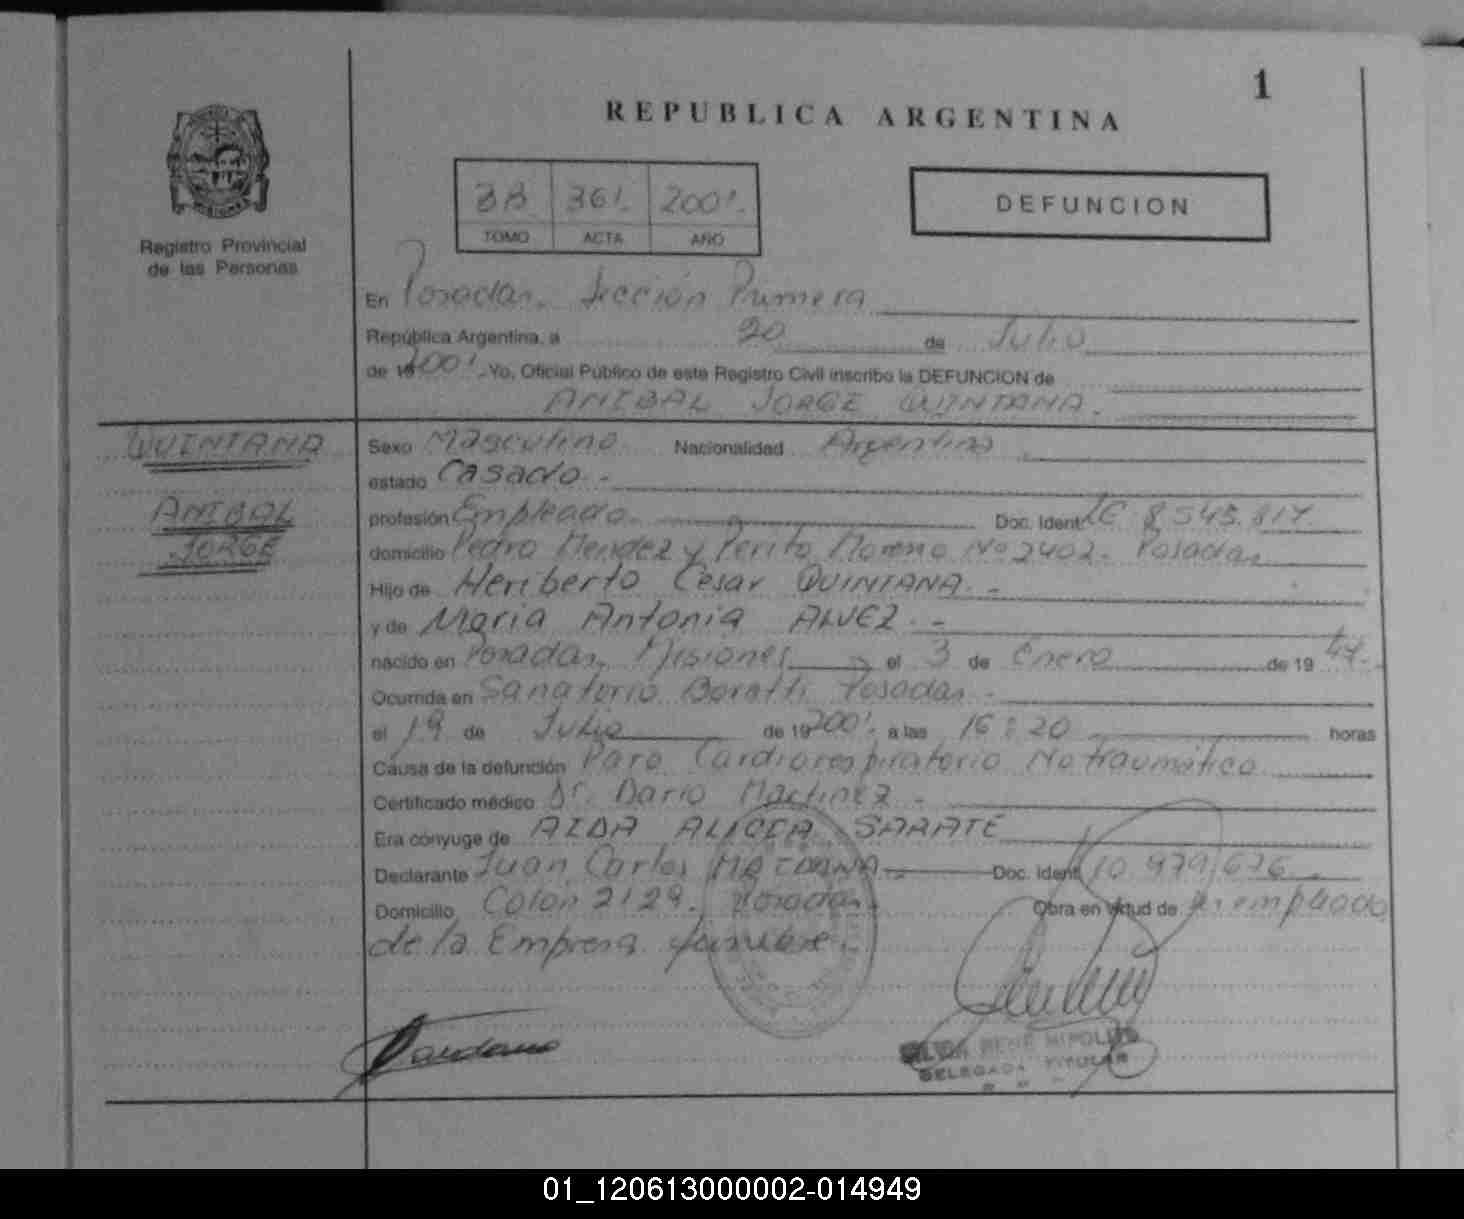 1
REPUBLICA ARGENTINA
361. 2001.
TOMO ACTA AÑO
DEFUNCION
Registro Provincial
de las Personas
En Posadas. Sección Primera
República Argentina, a 20 de Julio
de 19 2001. Yo, Oficial Público de este Registro Civil inscribo la DEFUNCION de
ANIBAL JORGE QUINTANA.
QUINTANA
ANIBAL
JORGE
Sexo Masculino Nacionalidad Argentina
estado Casado.-
profesión Empleado. Doc. Ident. LE 8.545.817.
domicilio Pedro Mendez y Perito Moreno Nº 2402. Posadas
Hijo de Heriberto Cesar QUINTANA.-
y de Maria Antonia ALVEZ.-
nacido en Posadas, Misiones el 3 de Enero de 19 47.-
Ocurrida en Sanatorio Boratti Posadas-
el 19 de Julio de 19 2001. a las 16:20 horas
Causa de la defunción Paro Cardiorespiratorio No traumático
Certificado médico Dr. Dario Martinez.-
Era cónyuge de AIDA SARATE
Declarante Juan Carlos Doc. Ident. 10.979.676.
Domicilio Colon 2129. Posadas. Obra en virtud de ser empleado
de la Empresa funebre.
RENE HIPOLITO
DELEGADA TITULAR
01_120613000002-014949